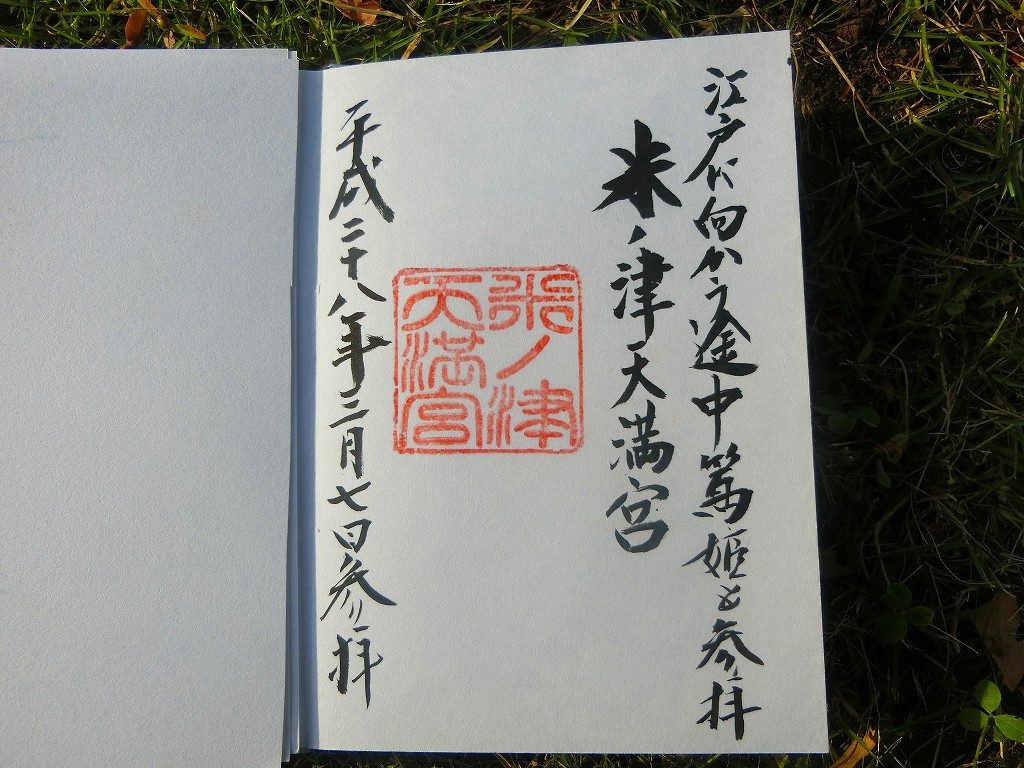 江戸に向かう途中篤姫と参拝
米ノ津天満宮
米ノ津
天満宮
平成二十八年二月七日参拝